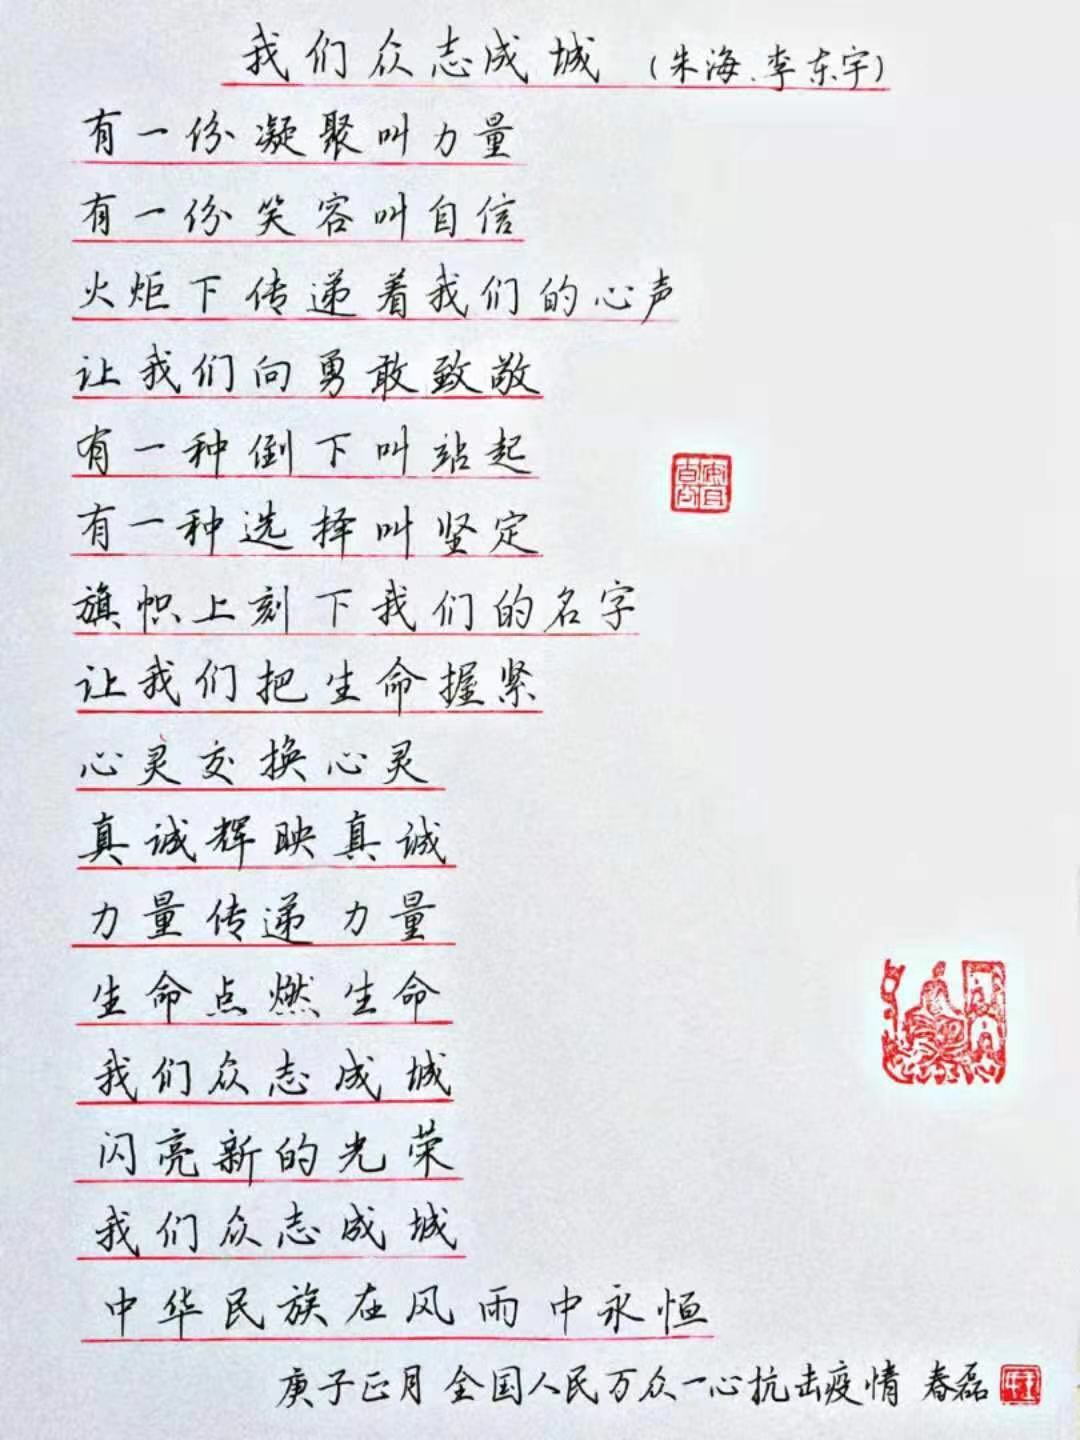 我们众志成城 （朱海、李东宇）
有一份凝聚叫力量
有一份笑容叫自信
火炬下传递着我们的心声
让我们向勇敢致敬
有一种倒下叫站起
有一种选择叫坚定
旗帜上刻下我们的名字
让我们把生命握紧
心灵交换心灵
真诚辉映真诚
力量传递力量
生命点燃生命
我们众志成城
闪亮新的光荣
我们众志成城
中华民族在风雨中永恒
庚子正月 全国人民万众一心抗击疫情 春磊